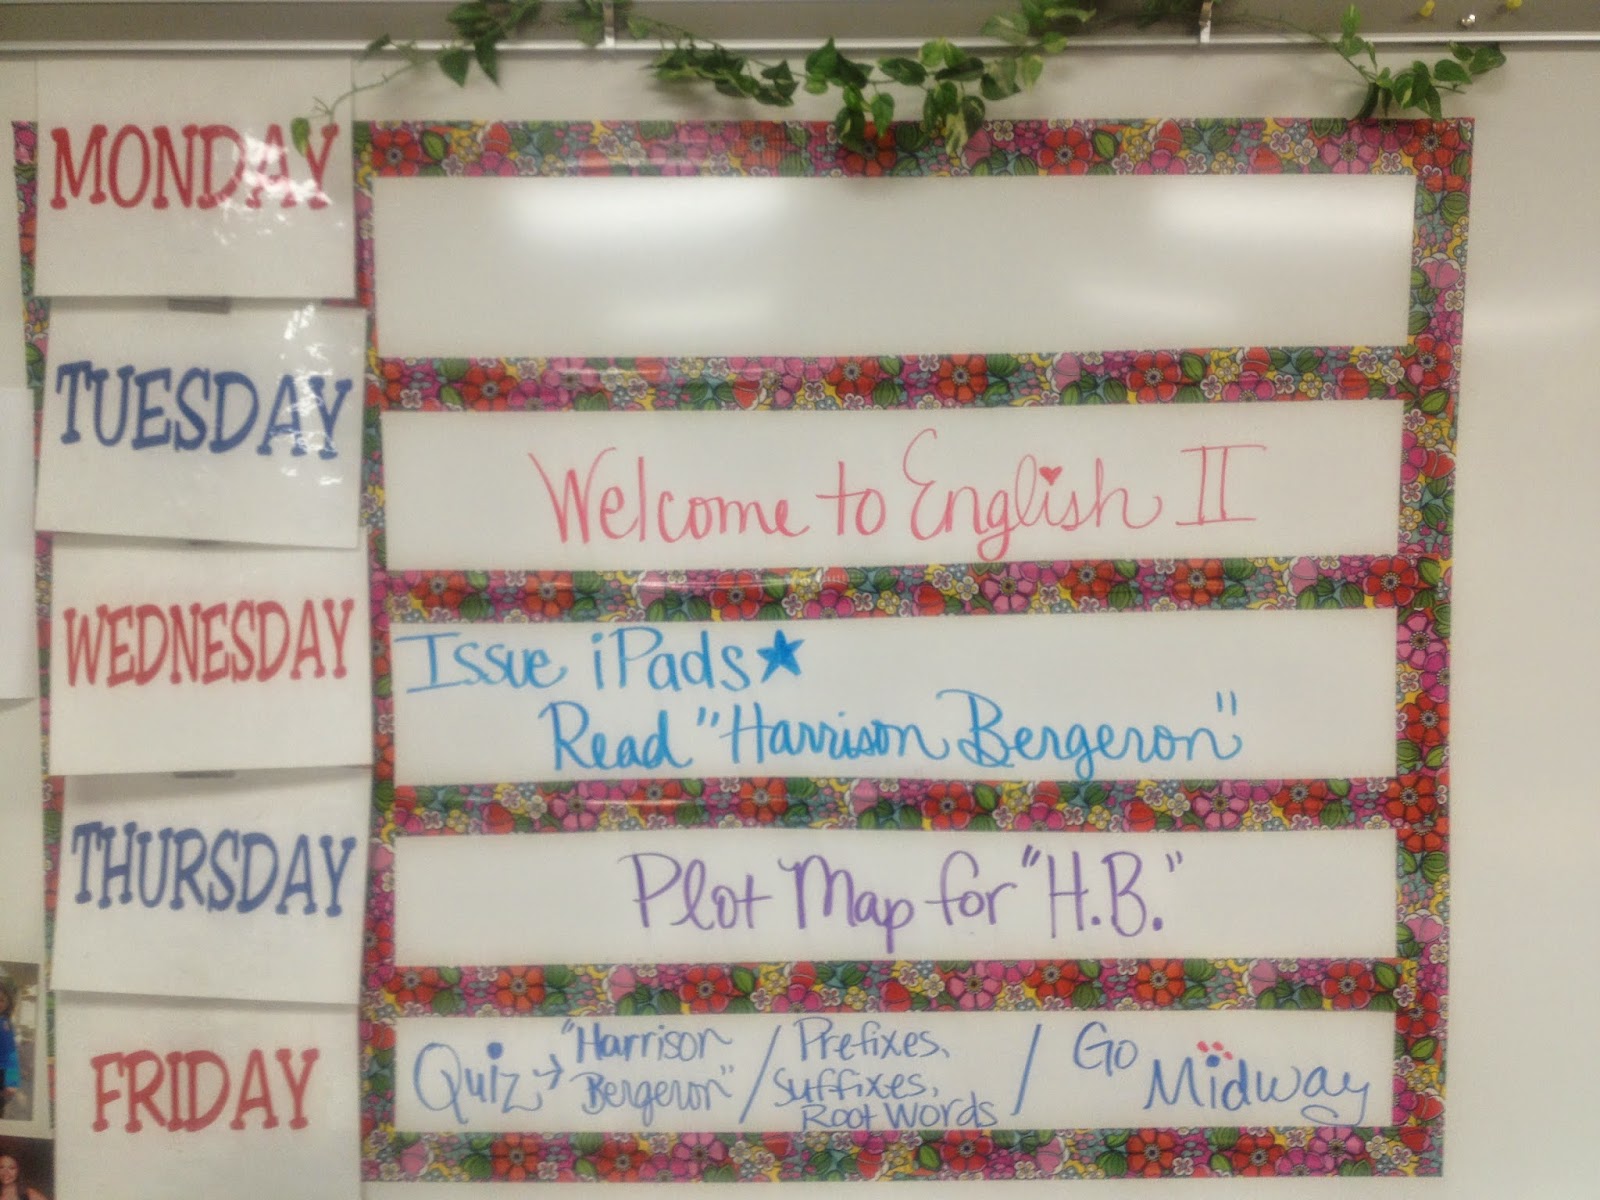 MONDAY
TUESDAY
Welcome to English II
WEDNESDAY
Issue iPads
Read "Harrison Bergeron"
THURSDAY
Plot Map for "H.B."
FRIDAY
Quiz → "Harrison Bergeron" / Prefixes, Suffixes, Root Words / Go Midway